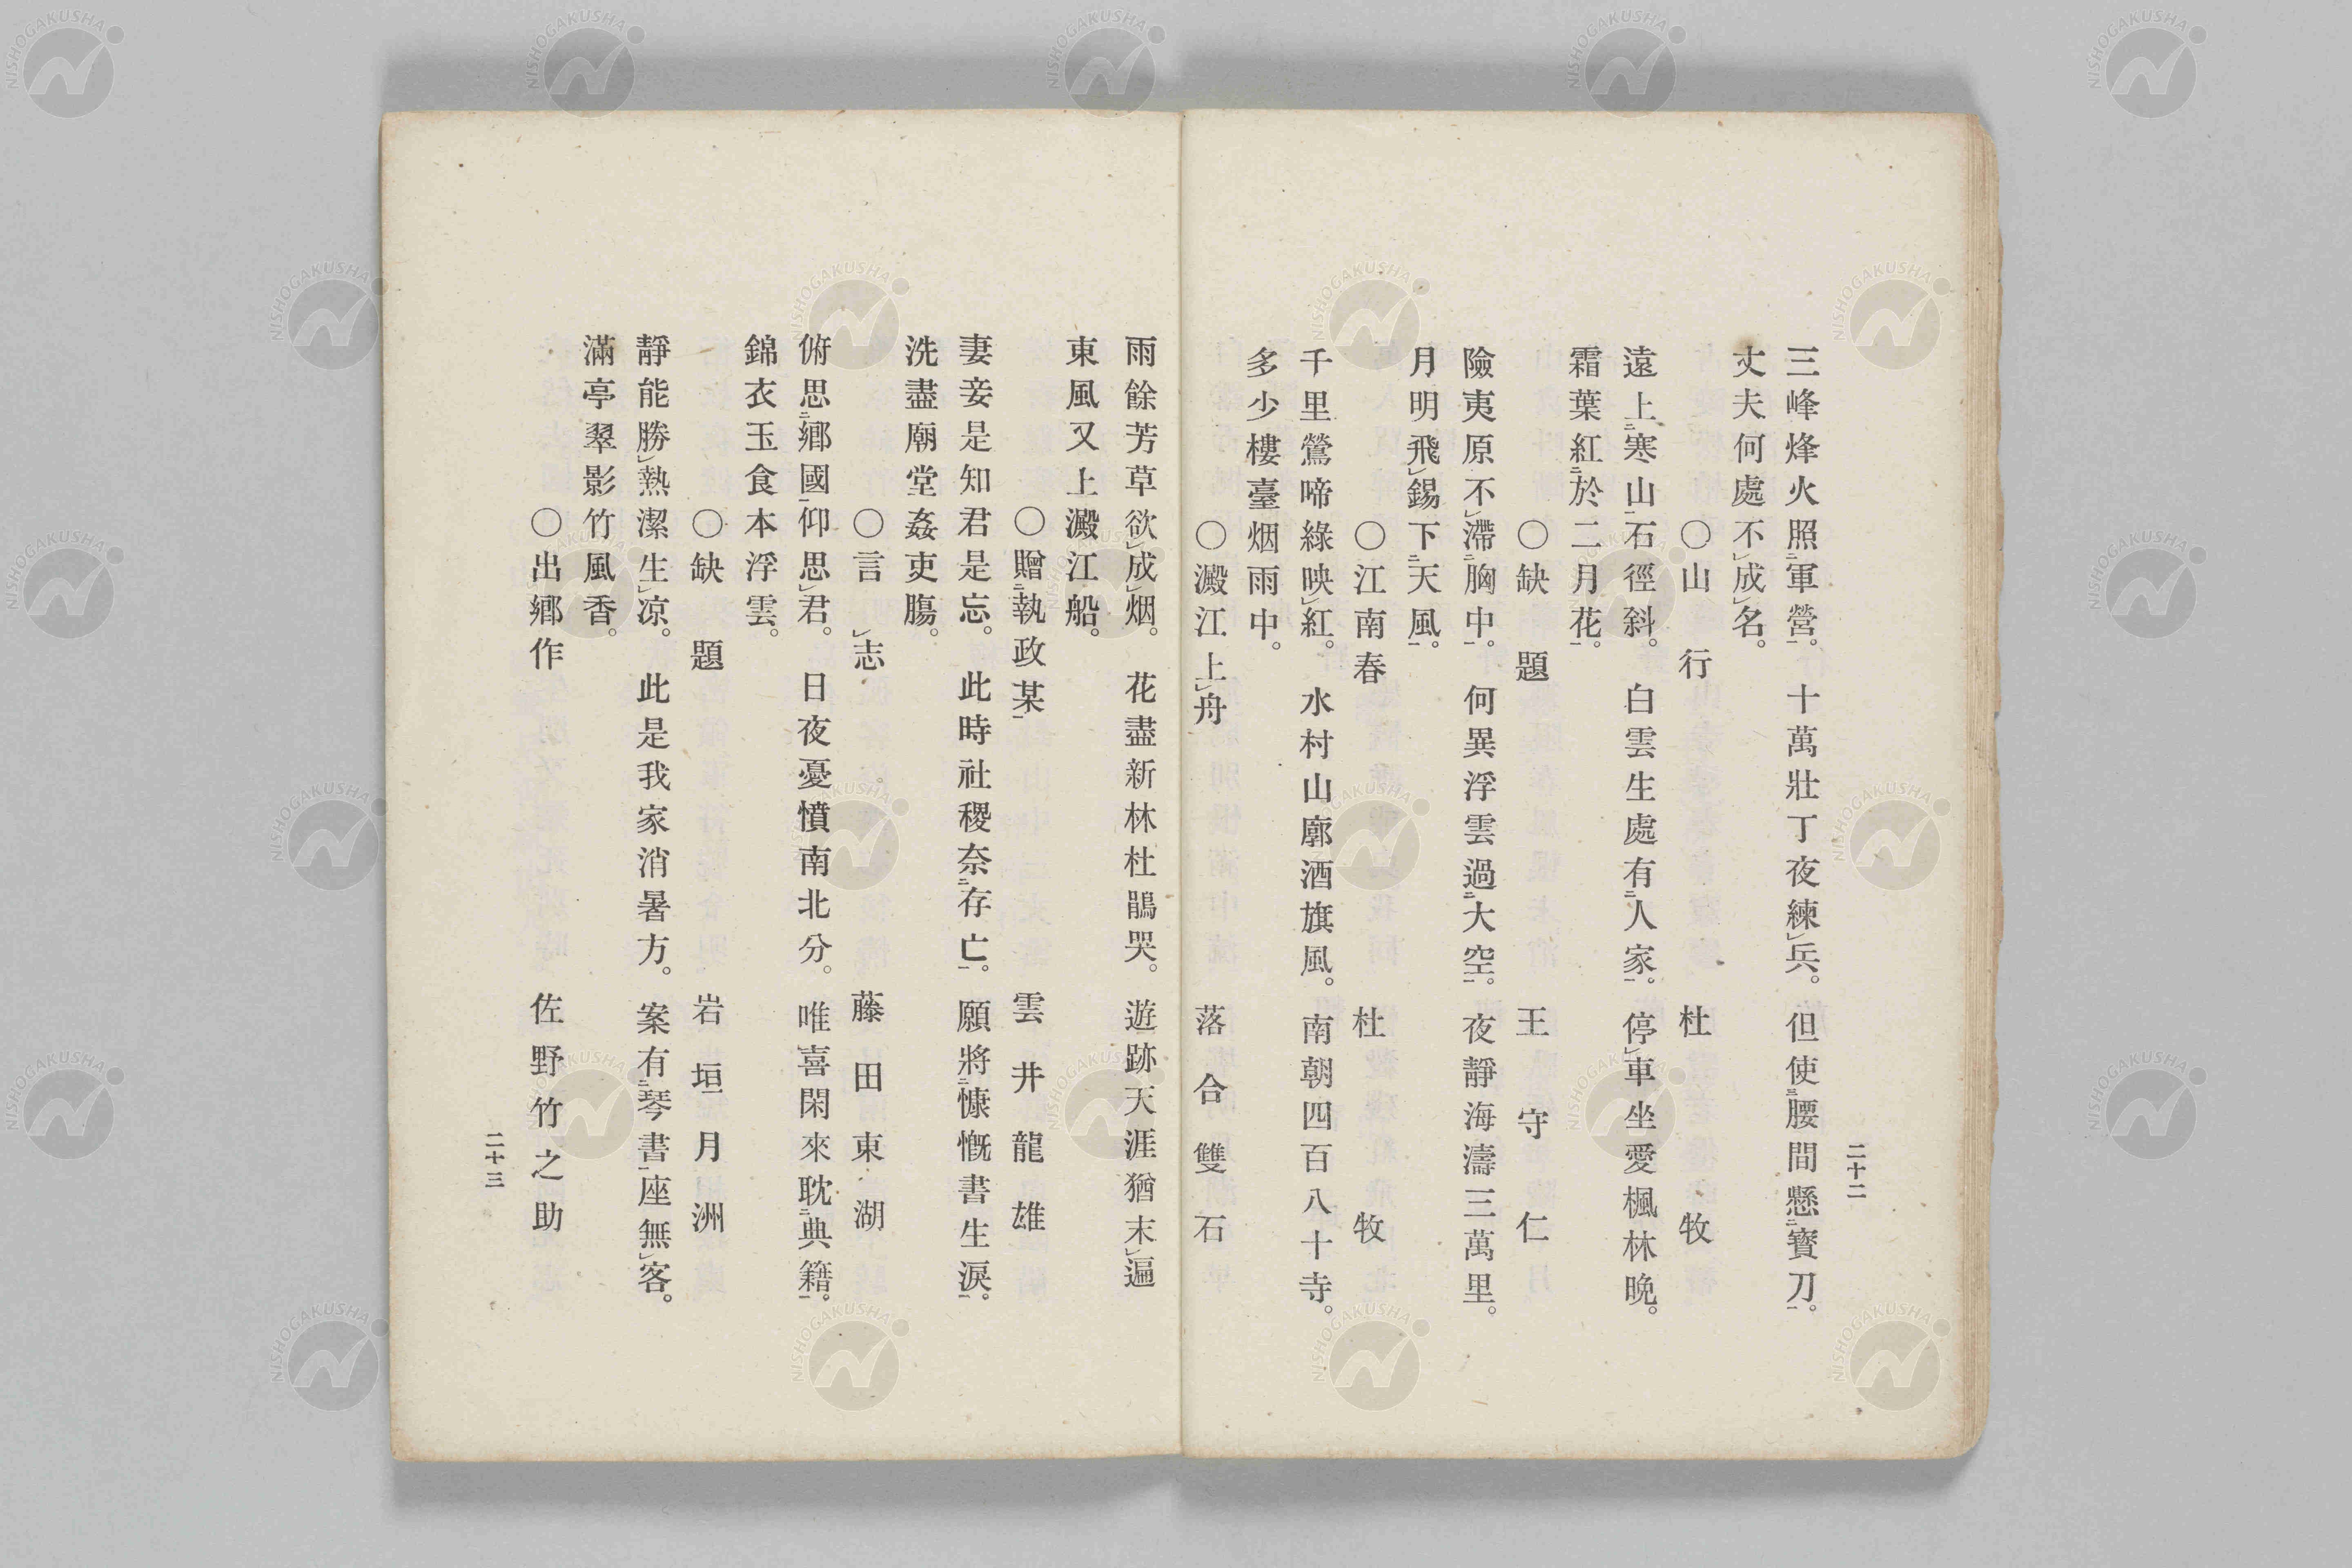 二十二
三峰烽火照㆓軍營㆒。十萬壯丁夜練㆑兵。但使㆔腰間懸㆓寶刀㆒。
丈夫何處不㆑成㆑名。
○山行　杜牧
遠上㆓寒山㆒石徑斜。白雲生處有㆓人家㆒。停㆑車坐愛楓林晚。
霜葉紅㆓於二月花㆒。
○缺題　王守仁
險夷原不㆑滯㆓胸中㆒。何異浮雲過㆓大空㆒。夜靜海濤三萬里。
月明飛㆑錫下㆓天風㆒。
○江南春　杜牧
千里鶯啼綠映㆑紅。水村山廓酒旗風。南朝四百八十寺。
多少樓臺烟雨中。
○澱江上㆑舟　落合雙石
雨餘芳草欲㆑成㆑烟。花盡新林杜鵑哭。遊跡天涯猶末㆑遍
東風又上澱江船。
○贈㆓執政某㆒　雲井龍雄
妻妾是知君是忘。此時社稷奈㆓存亡㆒。願將㆓慷慨書生淚㆒。
洗盡廟堂姦吏膓。
○言㆑志　藤田東湖
俯思㆓鄕國㆒仰思㆑君。日夜憂憤南北分。唯喜閑來耽㆓典籍㆒。
錦衣玉食本浮雲。
○缺題　岩垣月洲
靜能勝㆑熱潔生㆑凉。此是我家消暑方。案有㆓琴書㆒座無㆑客。
滿亭翠影竹風香。
○出鄕作　佐野竹之助
二十三
NISHOGAKUSHA